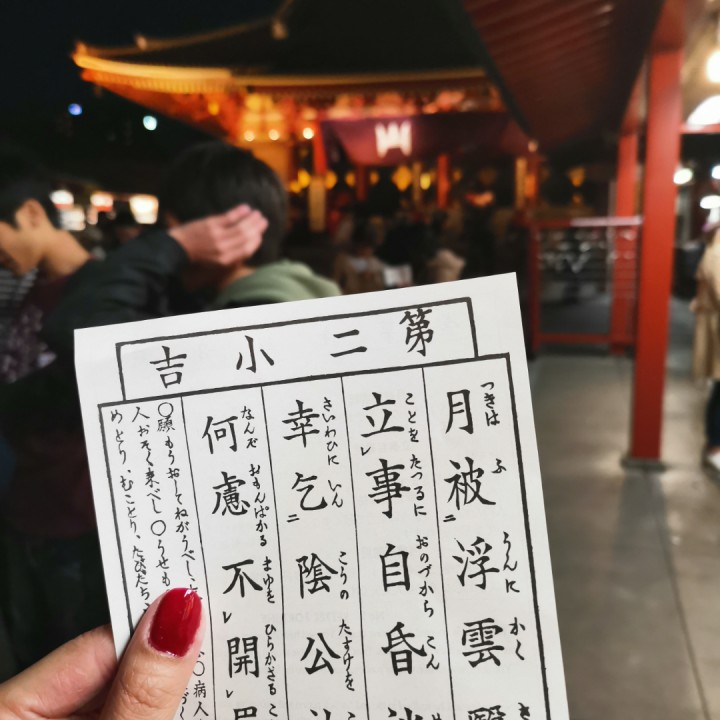 第二小吉
つきは ふ うんに かく
月被二浮雲翳
ことを たつるに おのづから こん
立レ事自昏
さいわひに いん こうの たすけを こ
幸乞二陰公
なんぞ おもんぱかる まゆを ひらかざる こ
何慮不レ開レ
〇願もうおしてねがうべし、
〇病人
人おそく来べし 〇うせも
めとり、むことり、たびだち